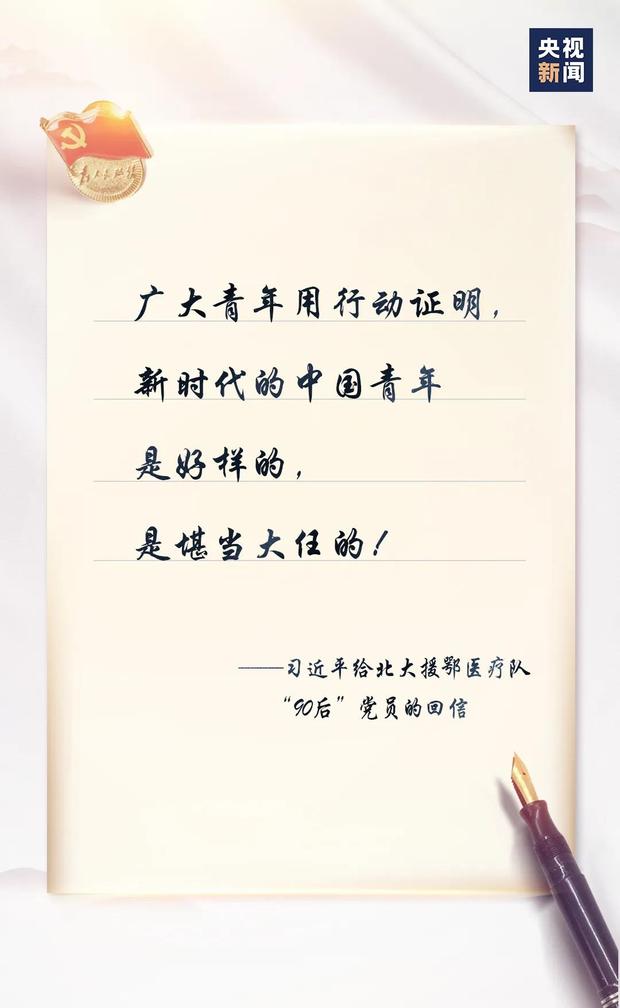 央视
新闻
为人民服务
广大青年用行动证明，
新时代的中国青年
是好样的，
是堪当大任的！
——习近平给北大援鄂医疗队
“90后”党员的回信